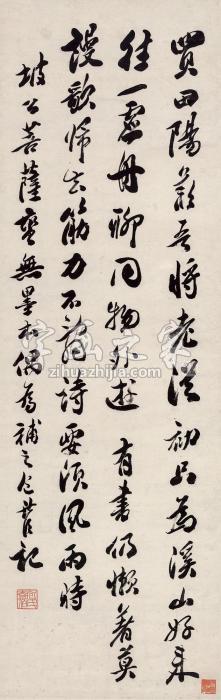 買田陽羨吾將老從初只為溪山好來
往一虛舟聊同物外遊 有書仍懶著莫
謾歌歸去筋力不辭詩要須風雨時
坡公菩薩蠻無墨本偶為補之 記
字画之家
www.zihuazhijia.com